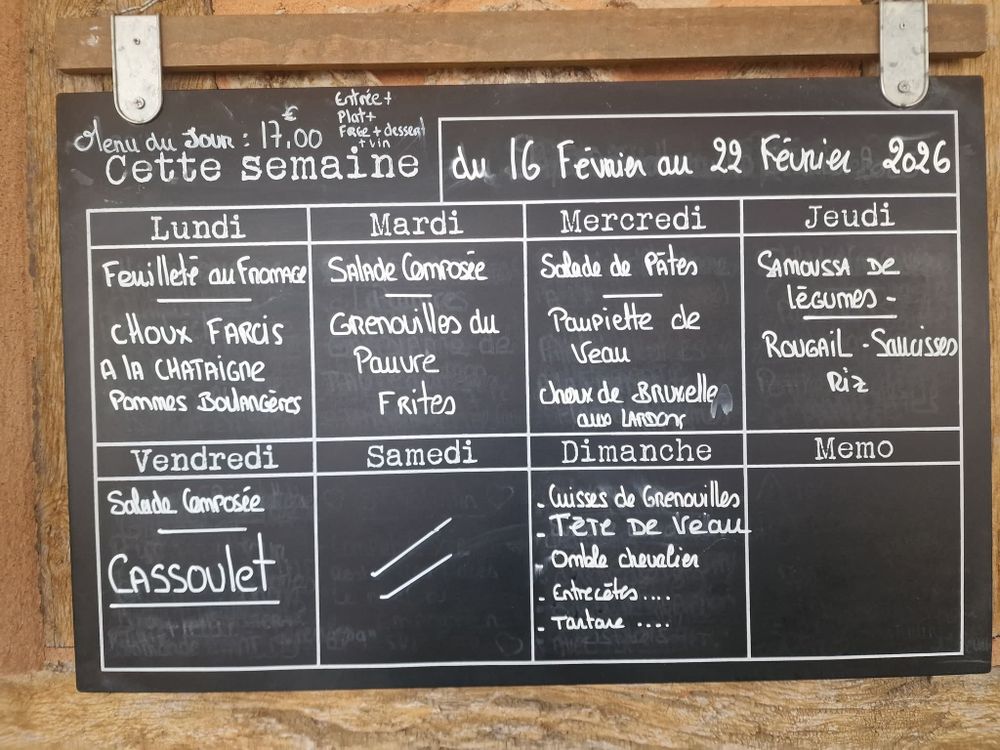 Menu du Jour : 17,00 €
Entrée +
Plat +
+ dessert
+ vin
Cette semaine
du 16 Février au 22 Février 2026
Lundi
Feuilleté au Fromage
CHOUX FARCIS
A la CHATAIGNE
Pommes Boulangères
Mardi
Salade Composée
Grenouilles du
Pauvre
Frites
Mercredi
Salade de Pâtes
Paupiette de
Veau
choux de Bruxelle
aux LARDONS
Jeudi
Samoussa de
légumes -
Rougail - Saucisses
Riz
Vendredi
Salade Composée
Cassoulet
Samedi
Dimanche
- Cuisses de Grenouilles
- Tête de veau
- Omble chevalier
- Entrecôtes ....
- Tartare ....
Memo